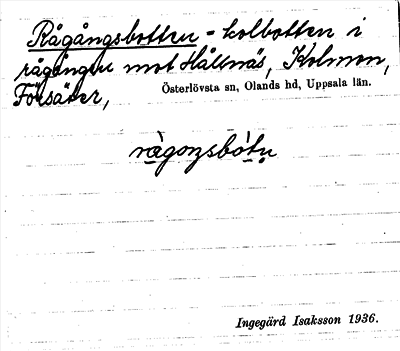 Rågångsbotten - kolbotten i
rågången mot Hållnäs, Kolmon,
Försäter, Österlövsta sn, Olands hd, Uppsala län.
rågoŋsbòtn
Ingegärd Isaksson 1936.